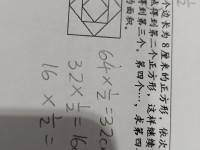 个边长为8厘米的正方形，依次
得到第二个正方形，这样继续
得到第三个、第四个…，求第四
的面积。
64×½=32c
32×½=16
16×½=